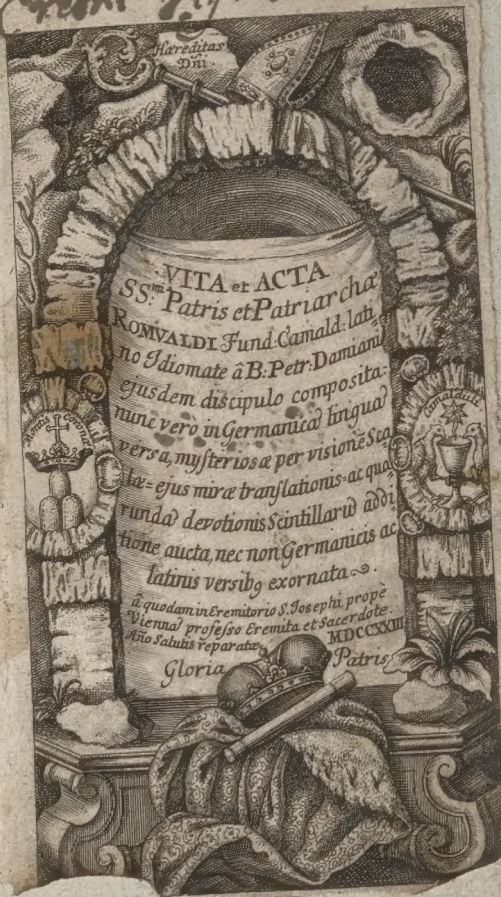 Hæreditas
Dñi
VITA et ACTA
SS:mi Patris et Patriarchæ
ROMVALDI Fund: Camald: lati-
no Idiomate â B: Petr: Damiani
ejusdem discipulo composita:
nunc verò in Germanicā linguā
versa, mysteriosæ per visionē Sca
læ=ejus miræ translationis=ac qua
rundā devotionis Scintillarū addi
tione aucta, nec non Germanicis ac
latinis versibꝯ exornata
â quodam in Eremitorio S. Iosephi propè
Viennā professo Eremita et Sacerdote.
Año Salutis reparatæ MDCCXXIII
Gloria Patris
Montis Coronæ
Camaldulē